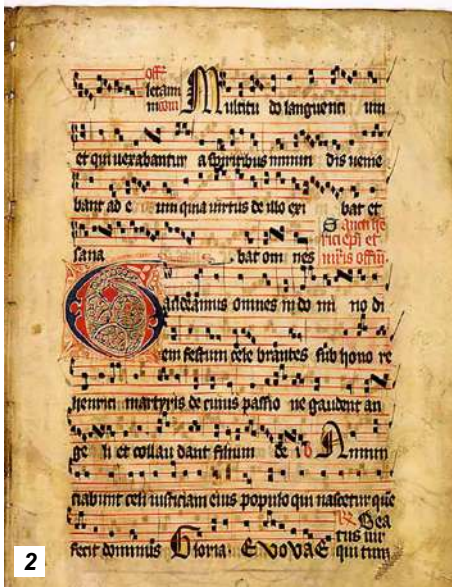 off
letam
Multitu do languenti um
et qui uexabantur a spiritibus inmun dis uenie
bant ad e um quia uirtus de illo exi bat et
sana bat om nes
Sancti he
rici epi et
mris offm
Gaudeamus omnes in do mi no di
em festum cele brantes sub hono re
henrici martyris de cuius passio ne gaudent an
ge li et collau dant filium de i
Annun
ciabunt celi iusticiam eius populo qui nascetur que
fecit dominus Gloria EVOVAE
Bea
tus uir
qui tim
2